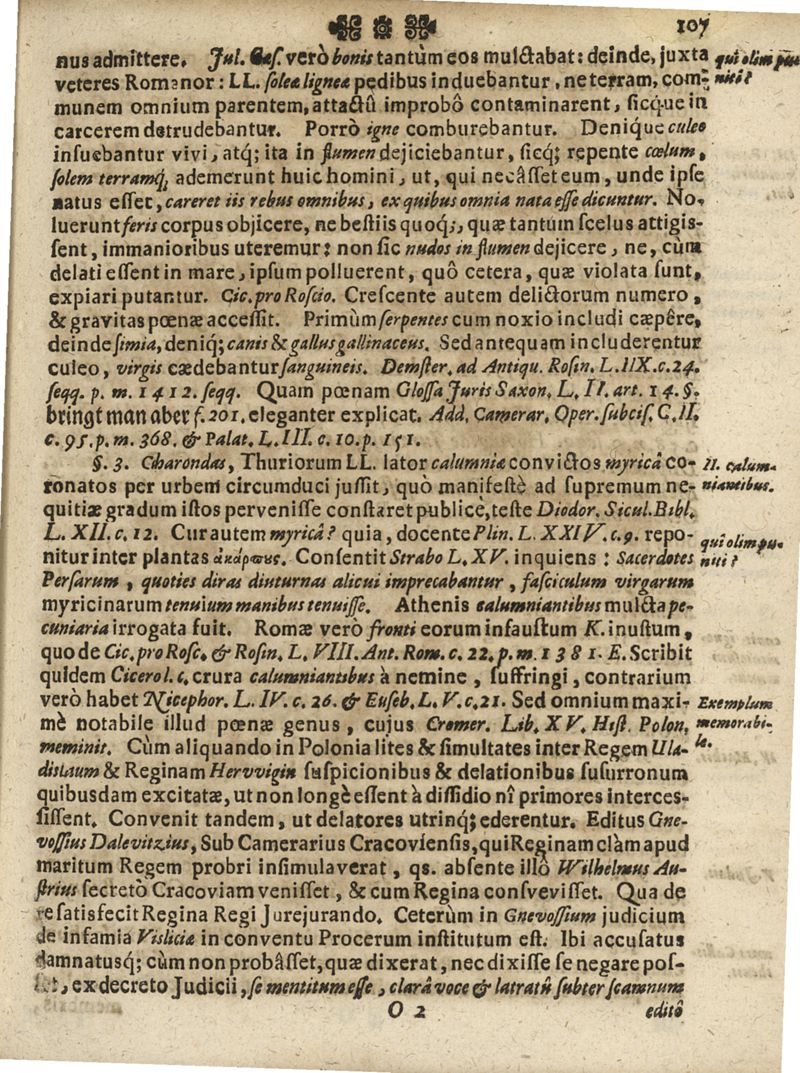 107
nus admittere. Jul. Cæs. verò bonis tantùm eos mulctabat: deinde, juxta
veteres Romanor: LL. soleâ ligneâ pedibus induebantur, ne terram, com-
munem omnium parentem, attactû improbô contaminarent, sicque in
carcerem detrudebantur. Porrò igne comburebantur. Denique culeo
insuebantur vivi, atq; ita in flumen dejiciebantur, sicq; repente cœlum,
solem terramq; ademerunt huic homini, ut, qui necâsset eum, unde ipse
natus esset, careret iis rebus omnibus, ex quibus omnia nata esse dicuntur. No-
luerunt feris corpus objicere, ne bestiis quoq;, quæ tantum scelus attigis-
sent, immanioribus uteremur: non sic nudos in flumen dejicere, ne, cùm
delati essent in mare, ipsum polluerent, quô cetera, quæ violata sunt,
expiari putantur. Cic. pro Roscio. Crescente autem delictorum numero,
& gravitas pœnæ accessit. Primùm serpentes cum noxio includi cæpêre,
deinde simia, deniq; canis & gallus gallinaceus. Sed antequam includerentur
culeo, virgis cædebantur sanguineis. Demster. ad Antiqu. Rosin. L. IIX. c. 24.
seqq. p. m. 1412. seqq. Quam pœnam Glossa Juris Saxon. L. II. art. 14. §.
bringt man aber f. 201. eleganter explicat. Add. Camerar. Oper. subcis. C. II.
c. 95. p. m. 368. & Palat. L. III. c. 10. p. 151.
§. 3. Charondas, Thuriorum LL. lator calumniæ convictos myricâ co-
ronatos per urbem circumduci jussit, quò manifestè ad supremum ne-
quitiæ gradum istos pervenisse constaret publicè, teste Diodor. Sicul. Bibl.
L. XII. c. 12. Cur autem myricâ? quia, docente Plin. L. XXIV. c. 9. repo-
nitur inter plantas ἀκάρπους. Consentit Strabo L. XV. inquiens: Sacerdotes
Persarum, quoties diras diuturnas alicui imprecabantur, fasciculum virgarum
myricinarum tenuium manibus tenuisse. Athenis calumniantibus mulcta pe-
cuniaria irrogata fuit. Romæ verò fronti eorum infaustum K. inustum,
quo de Cic. pro Rosc. & Rosin. L. VIII. Ant. Rom. c. 22. p. m. 1381. E. Scribit
quidem Cicero l. c. crura calumniantibus à nemine, suffringi, contrarium
verò habet Nicephor. L. IV. c. 26. & Euseb. L. V. c. 21. Sed omnium maxi-
mè notabile illud pœnæ genus, cujus Cromer. Lib. XV. Hist. Polon.
meminit. Cùm aliquando in Polonia lites & simultates inter Regem Ula-
dislaum & Reginam Hervvigin suspicionibus & delationibus susurronum
quibusdam excitatæ, ut non longè essent à dissidio nî primores interces-
sissent. Convenit tandem, ut delatores utrinq; ederentur. Editus Gne-
vossius Dalevitzius, Sub Camerarius Cracoviensis, qui Reginam clàm apud
maritum Regem probri insimulaverat, qs. absente illô Wilhelmus Au-
strius secretò Cracoviam venisset, & cum Regina consvevisset. Qua de
re satisfecit Regina Regi Jurejurando. Ceterùm in Gnevossium judicium
de infamia Visliciæ in conventu Procerum institutum est. Ibi accusatus
damnatusq; cùm non probâsset, quæ dixerat, nec dixisse se negare pos-
set, ex decreto Judicii, se mentitum esse, clarâ voce & latratû subter scamnum
O 2 editô
qui olim pu-
niti?
II. calum-
niantibus.
qui olim pu-
niti?
Exemplum
memorabi-
le.